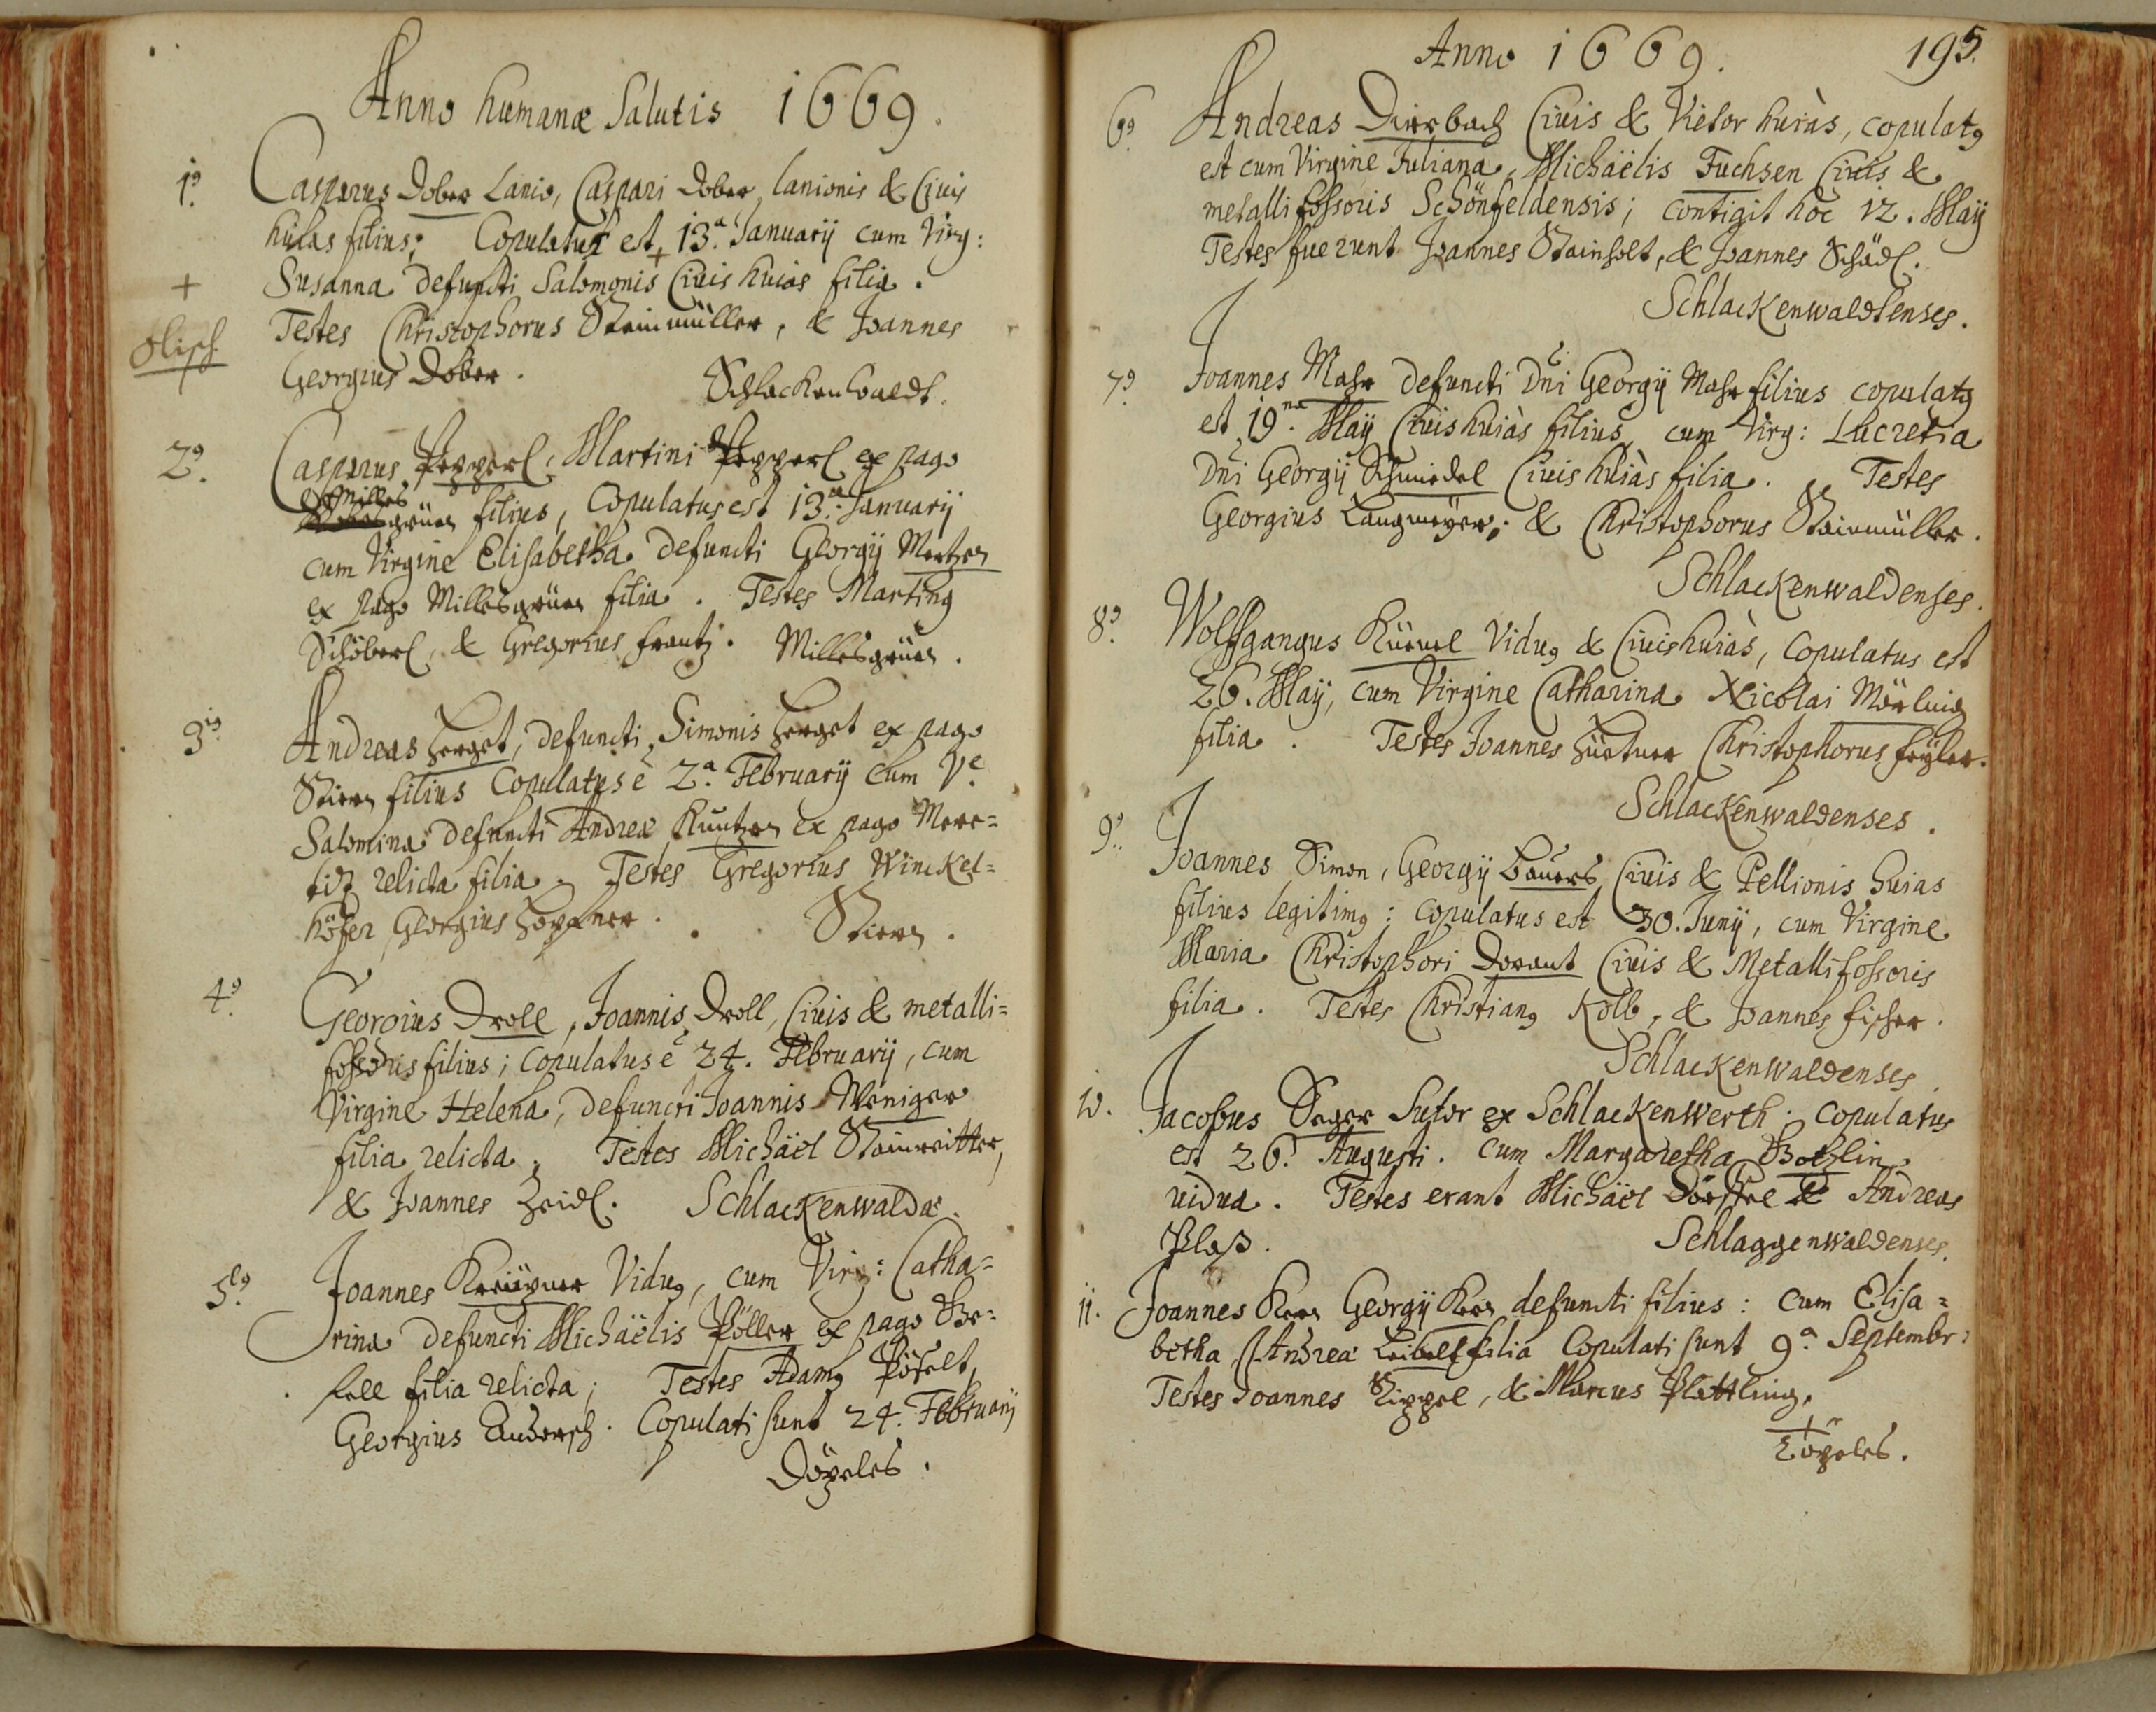 Anno humanæ Salutis 1669.
1.⁹ Casparus Dober Lanio, Caspari Dober lanionis & Civis
huias filius; Copulatus est 13.ª January cum Virg:
+ Susanna defuncti Salomonis + Civis huias filia.
Testes Christophorus Steinmüller, & Joannes
Olisch
Georgius Dober. Schlackenwaldt.
2.⁹ Casparus Pepperl, Martini Pepperl ex pago
Milles
grün filius, Copulatus est 13.ª January
cum Virgine Elisabetha defuncti Georgÿ Mertzen
ex pago Millesgrün filia. Testes Marting
Schöberl, & Gregorius Frantz. Millesgrün.
3.ⁱ⁹ Andreas Herget, defuncti Simonis Herget ex pago
Stirn filius Copulatus ē 2.ª February cum Vᵉ
Salomina defuncti Andreæ Kuntzen ex pago Mere=
titz relicta filia. Testes Gregorius Winckel=
höfer Georgius Hoppner. Stirn.
4.⁹ Georgius Droll, Joannis Droll, Civis & metalli=
fossoris filius; Copulatus ē 24. February, cum
Virgine Helena, defuncti Joannis Weniger
filia relicta. Testes Michaël Stainreitter,
& Joannes Zeidl. Schlackenwaldæ.
5.ˡ⁹ Joannes Vidu⁹, cum Virg: Catha=
rina defuncti Michaëlis Pöller ex pago Ge=
fell filia relicta; Testes Adam⁹ Pöselt,
Georgius Endersch. Copulati sunt 24. February
Döpeles.
Anno 1669. 195.
6.⁹ Andreas Dürrbach Civis & Vietor huiàs, copulat⁹
est cum Virgine Juliana, Michaëlis Fuchsen Civis &
metallifossoris Schönfeldensis; contigit hoc 12. Maÿ
Testes fuerunt Joannes Stainholt, & Joannes Schädl.
Schlackenwaldenses.
7.⁹ Joannes Mahr defuncti Dñi Georgÿ Mahr filius copulat⁹
est 19.ⁿᵃ Maÿ Civis huiàs filius cum Virg: Lucretia
Dñi Georgÿ Schmiedel Civis huiàs filia. Testes
Georgius Langmeÿer, & Christophorus Steinmüller.
Schlackenwaldenses.
8.⁹ Wolffgangus Vidu⁹ & Civis huiàs, Copulatus est
26. Maÿ, cum Virgine Catharina Nicolai Mörling
filia. Testes Joannes Hüttner Christophorus Feÿler.
Schlackenwaldenses.
9.⁹ Joannes Simon, Georgÿ Bauers Civis & Pellionis huias
filius legitim⁹; copulatus est 30. Junÿ, cum Virgine
Maria Christophori Dorant Civis & Metallifossoris
filia. Testes Christian⁹ Kolb, & Joannes Fischer.
Schlackenwaldenses
10. Jacobus Seger Sutor ex Schlackenwerth; copulatus
est 26. Augusti. cum Margaretha Götzlin
vidua. Testes erant Michaël Dörffel & Andreas
Plaß. Schlaggenwaldenses.
11. Joannes Kern Georgÿ Kern defuncti filius: cum Elisa=
betha, Andreæ Leibelt filia Copulati sunt 9.ª Septembr:
Testes Joannes Zippel, & Marcus Plattling.
+
Töpeles.